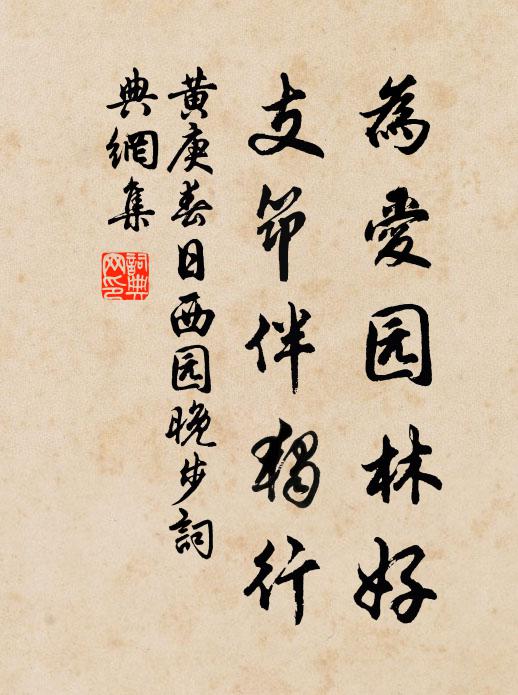 為愛园林好
支笻伴獨行
黄庚春日西园晚步詞
典網集
詞典
网印